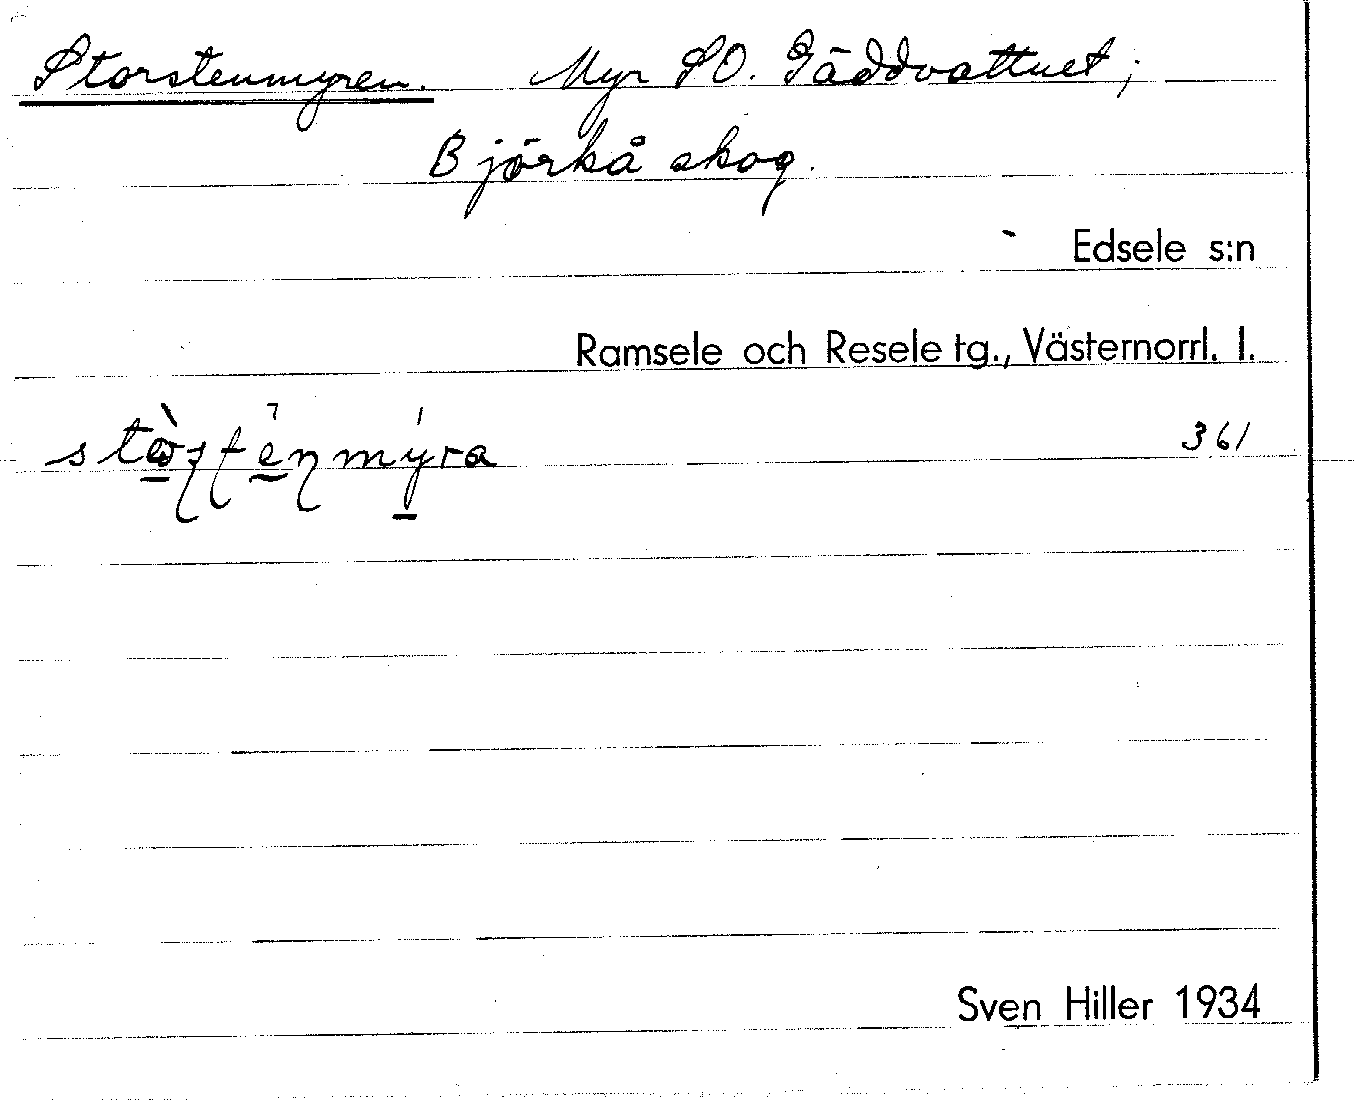 Storstenmyren. Myr SO. Gäddvattnet;
Björkå skog.
Edsele s:n
Ramsele och Resele tg., Västernorrl. l.
361
Sven Hiller 1934